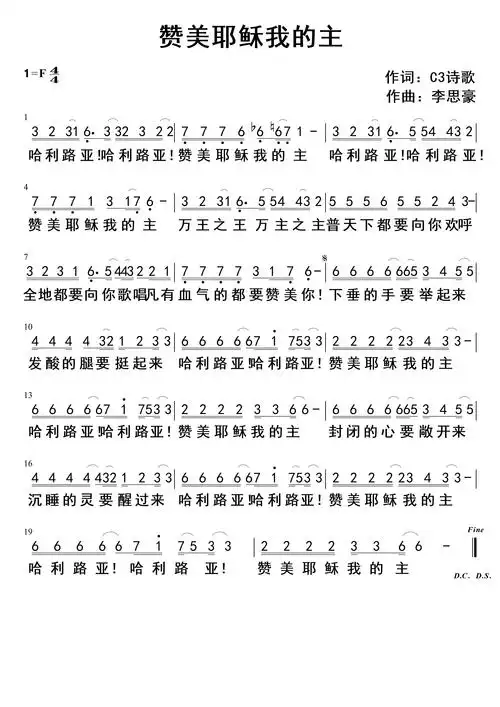 赞美耶稣我的主
1=F 4/4
作词：C3诗歌
作曲：李思豪
1
3 2 231 6· 332 3 2 2 | 7 7 7 6 ♭6 ♮67 1 - | 3 2 31 6· 5 54 43 2 |
哈利路亚!哈利路亚!赞美耶稣我的主 哈利路亚!哈利路亚!
4
7 7 7 1 3 17 6 - | 3 2 31 6· 5 54 43 2 | 5 5 5 6 5 2 4 3 - |
赞美耶稣我的主 万王之王万主之主普天下都要向你欢呼
7
8
3 2 3 1 6· 5443 2 2 1 | 7 7 7 7 3 1 7 6 - | 6 6 6 6 665 3 4 5 5 |
全地都要向你歌唱凡有血气的都要赞美你!下垂的手要举起来
10
4 4 4 4 32 1 2 3 3 | 6 6 6 6 67 1 753 3 | 2 2 2 2 23 4 3 3 |
发酸的腿要挺起来 哈利路亚!哈利路亚!赞美耶稣我的主
13
6 6 6 6 67 1 753 3 | 2 2 2 2 3 3 6 6 - | 6 6 6 6 665 3 4 5 5 |
哈利路亚!哈利路亚!赞美耶稣我的主 封闭的心要敞开来
16
4 4 4 4 432 1 2 3 3 | 6 6 6 6 67 1 753 3 | 2 2 2 2 23 4 3 3 |
沉睡的灵要醒过来 哈利路亚!哈利路亚!赞美耶稣我的主
19
Fine
6 6 6 6 6 7 1 7 5 3 3 | 2 2 2 2 3 3 6 6 -
哈利路亚!哈利路亚! 赞美耶稣我的主
D.C. D.S.